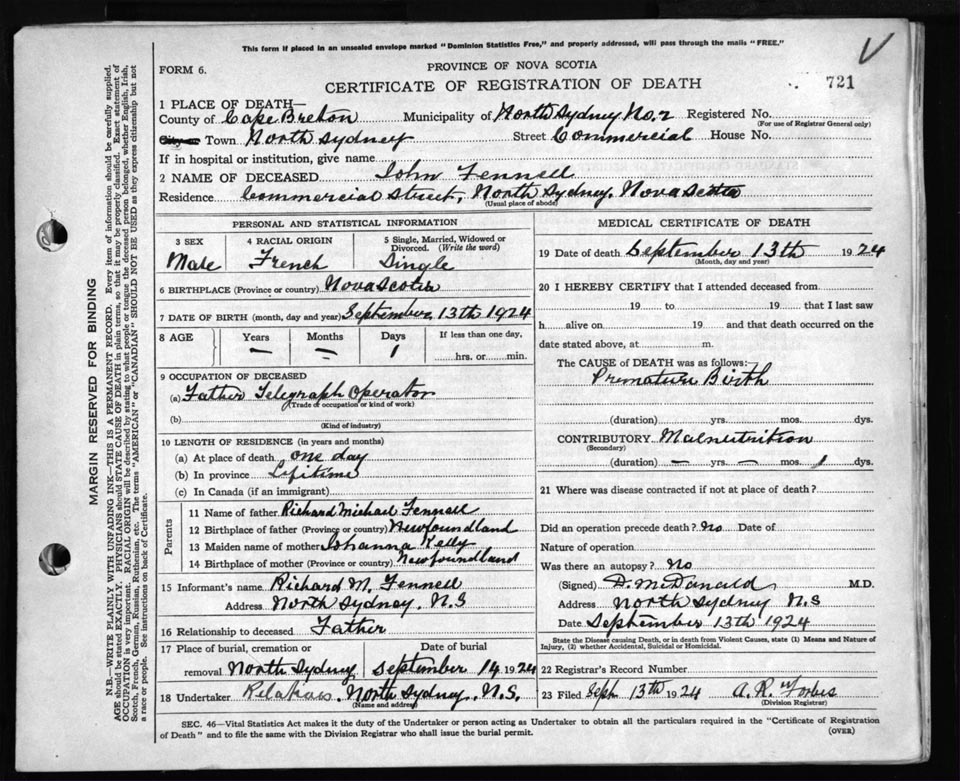 This form if placed in an unsealed envelope marked "Dominion Statistics Free," and properly addressed, will pass through the mails "FREE."
V
FORM 6.
PROVINCE OF NOVA SCOTIA
CERTIFICATE OF REGISTRATION OF DEATH
721
1 PLACE OF DEATH—
County of Cape Breton Municipality of North Sydney No. 2 Registered No.
(For use of Registrar General only)
City or Town North Sydney Street Commercial House No.
If in hospital or institution, give name
2 NAME OF DECEASED John Fennell
Residence Commercial Street, North Sydney, Nova Scotia
(Usual place of abode)
PERSONAL AND STATISTICAL INFORMATION
3 SEX 4 RACIAL ORIGIN 5 Single, Married, Widowed or Divorced. (Write the word)
Male French Single
6 BIRTHPLACE (Province or country) Nova Scotia
7 DATE OF BIRTH (month, day and year) September 13th 1924
8 AGE Years Months Days If less than one day,
— — 1 hrs. or min.
9 OCCUPATION OF DECEASED
(a) Father Telegraph Operator
(Trade of occupation or kind of work)
(b)
(Kind of industry)
10 LENGTH OF RESIDENCE (in years and months)
(a) At place of death one day
(b) In province Lifetime
(c) In Canada (if an immigrant)
Parents
11 Name of father Richard Michael Fennell
12 Birthplace of father (Province or country) Newfoundland
13 Maiden name of mother Johanna Kelly
14 Birthplace of mother (Province or country) Newfoundland
15 Informant's name Richard M. Fennell
Address North Sydney. N.S
16 Relationship to deceased Father
17 Place of burial, cremation or removal Date of burial
North Sydney September 14 1924
18 Undertaker Relations. North Sydney. N.S.
(Name and address)
MEDICAL CERTIFICATE OF DEATH
19 Date of death September 13th 1924
(Month, day and year)
20 I HEREBY CERTIFY that I attended deceased from
19 to 19 that I last saw
h alive on 19 and that death occurred on the
date stated above, at m.
The CAUSE of DEATH was as follows:—
Premature Birth
(duration) yrs. mos. dys.
CONTRIBUTORY Malnutrition
(Secondary)
(duration) — yrs. — mos. 1 dys.
21 Where was disease contracted if not at place of death?
Did an operation precede death? No Date of
Nature of operation
Was there an autopsy? No
(Signed) D. McDonald M.D.
Address North Sydney N.S
Date September 13th 1924
State the Disease causing Death, or in death from Violent Causes, state (1) Means and Nature of Injury, (2) whether Accidental, Suicidal or Homicidal.
22 Registrar's Record Number
23 Filed Sept. 13th 1924 A. R. Forbes
(Division Registrar)
SEC. 46—Vital Statistics Act makes it the duty of the Undertaker or person acting as Undertaker to obtain all the particulars required in the "Certificate of Registration
of Death" and to file the same with the Division Registrar who shall issue the burial permit.
(OVER)
MARGIN RESERVED FOR BINDING
N.B.—WRITE PLAINLY WITH UNFADING INK—THIS IS A PERMANENT RECORD. Every item of information should be carefully supplied.
AGE should be stated EXACTLY. PHYSICIANS should STATE CAUSE OF DEATH in plain terms, so that it may be properly classified. Exact statement of
OCCUPATION is very important. RACIAL ORIGIN will be described by stating to what people or tongue the deceased person belonged, whether English, Irish,
Scotch, French, German, Russian, Ruthenian, etc. The terms "AMERICAN" or "CANADIAN" SHOULD NOT BE USED as they express citizenship but not
a race or people. See instructions on back of Certificate.